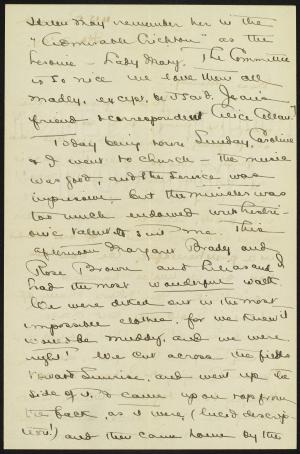 Helen may remember her in the
"Admirable Crichton" as the
heroine - Lady Mary. The Committee
is so nice we love them all
madly, except, be it said, Jean's
friend & correspondent Alice
Today being Sunday, Caroline
& I went to church - the music
was good, and the service was
impressive, but the minister was
too much endowed with histri-
onic talent to suit me. This
afternoon Margaret Brady and
Rose Brown and and I
had the most wonderful walk.
We were decked out in the most
impossible clothes, for we knew it
would be muddy, and we were
right! We cut across the fields
toward Sunrise, and went up the
side of it, & came up on top from
the back, as it were, (lucid descrip-
tion!) and then came home by the